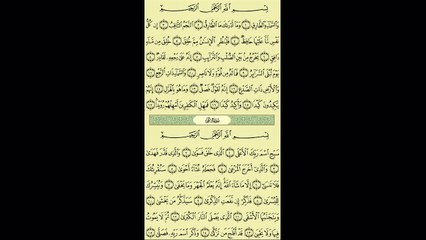 بِسْمِ اللَّهِ الرَّحْمَٰنِ الرَّحِيمِ
وَالسَّمَاءِ وَالطَّارِقِ ۝ وَمَا أَدْرَاكَ مَا الطَّارِقُ ۝ النَّجْمُ الثَّاقِبُ ۝ إِنْ كُلُّ
نَفْسٍ لَمَّا عَلَيْهَا حَافِظٌ ۝ فَلْيَنْظُرِ الْإِنْسَانُ مِمَّ خُلِقَ ۝ خُلِقَ مِنْ مَاءٍ
دَافِقٍ ۝ يَخْرُجُ مِنْ بَيْنِ الصُّلْبِ وَالتَّرَائِبِ ۝ إِنَّهُ عَلَىٰ رَجْعِهِ لَقَادِرٌ ۝
يَوْمَ تُبْلَى السَّرَائِرُ ۝ فَمَا لَهُ مِنْ قُوَّةٍ وَلَا نَاصِرٍ ۝ وَالسَّمَاءِ ذَاتِ الرَّجْعِ ۝
وَالْأَرْضِ ذَاتِ الصَّدْعِ ۝ إِنَّهُ لَقَوْلٌ فَصْلٌ ۝ وَمَا هُوَ بِالْهَزْلِ ۝ إِنَّهُمْ
يَكِيدُونَ كَيْدًا ۝ وَأَكِيدُ كَيْدًا ۝ فَمَهِّلِ الْكَافِرِينَ أَمْهِلْهُمْ رُوَيْدًا ۝
بِسْمِ اللَّهِ الرَّحْمَٰنِ الرَّحِيمِ
سَبِّحِ اسْمَ رَبِّكَ الْأَعْلَى ۝ الَّذِي خَلَقَ فَسَوَّىٰ ۝ وَالَّذِي قَدَّرَ فَهَدَىٰ
۝ وَالَّذِي أَخْرَجَ الْمَرْعَىٰ ۝ فَجَعَلَهُ غُثَاءً أَحْوَىٰ ۝ سَنُقْرِئُكَ
فَلَا تَنْسَىٰ ۝ إِلَّا مَا شَاءَ اللَّهُ إِنَّهُ يَعْلَمُ الْجَهْرَ وَمَا يَخْفَىٰ ۝ وَنُيَسِّرُكَ
لِلْيُسْرَىٰ ۝ فَذَكِّرْ إِنْ نَفَعَتِ الذِّكْرَىٰ ۝ سَيَذَّكَّرُ مَنْ يَخْشَىٰ ۝
وَيَتَجَنَّبُهَا الْأَشْقَى ۝ الَّذِي يَصْلَى النَّارَ الْكُبْرَىٰ ۝ ثُمَّ لَا يَمُوتُ
فِيهَا وَلَا يَحْيَىٰ ۝ قَدْ أَفْلَحَ مَنْ تَزَكَّىٰ ۝ وَذَكَرَ اسْمَ رَبِّهِ فَصَلَّىٰ ۝